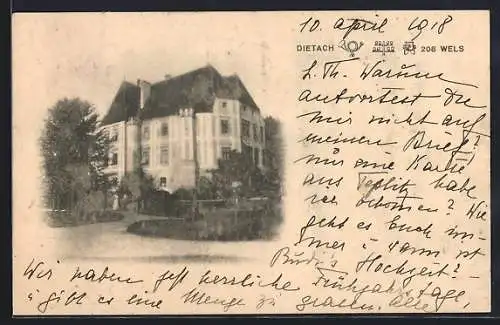 10. April 1918
DIETACH 206 WELS
L. Th. Warum
antwortest Du
mir nicht auf
meinen Brief?
nur eine Karte
aus Teplitz habe
ich bekommen? Wie
geht es Euch im-
mer u. wann ist
Budi's Hochzeit?
Wir haben jetzt herrliche Frühjahrstage,
es gibt es eine Menge zu